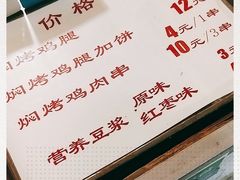 价格
焖烤鸡腿 12元
焖烤鸡腿加饼
焖烤鸡肉串 4元/1串
10元/3串
营养豆浆 原味 3
红枣味 4